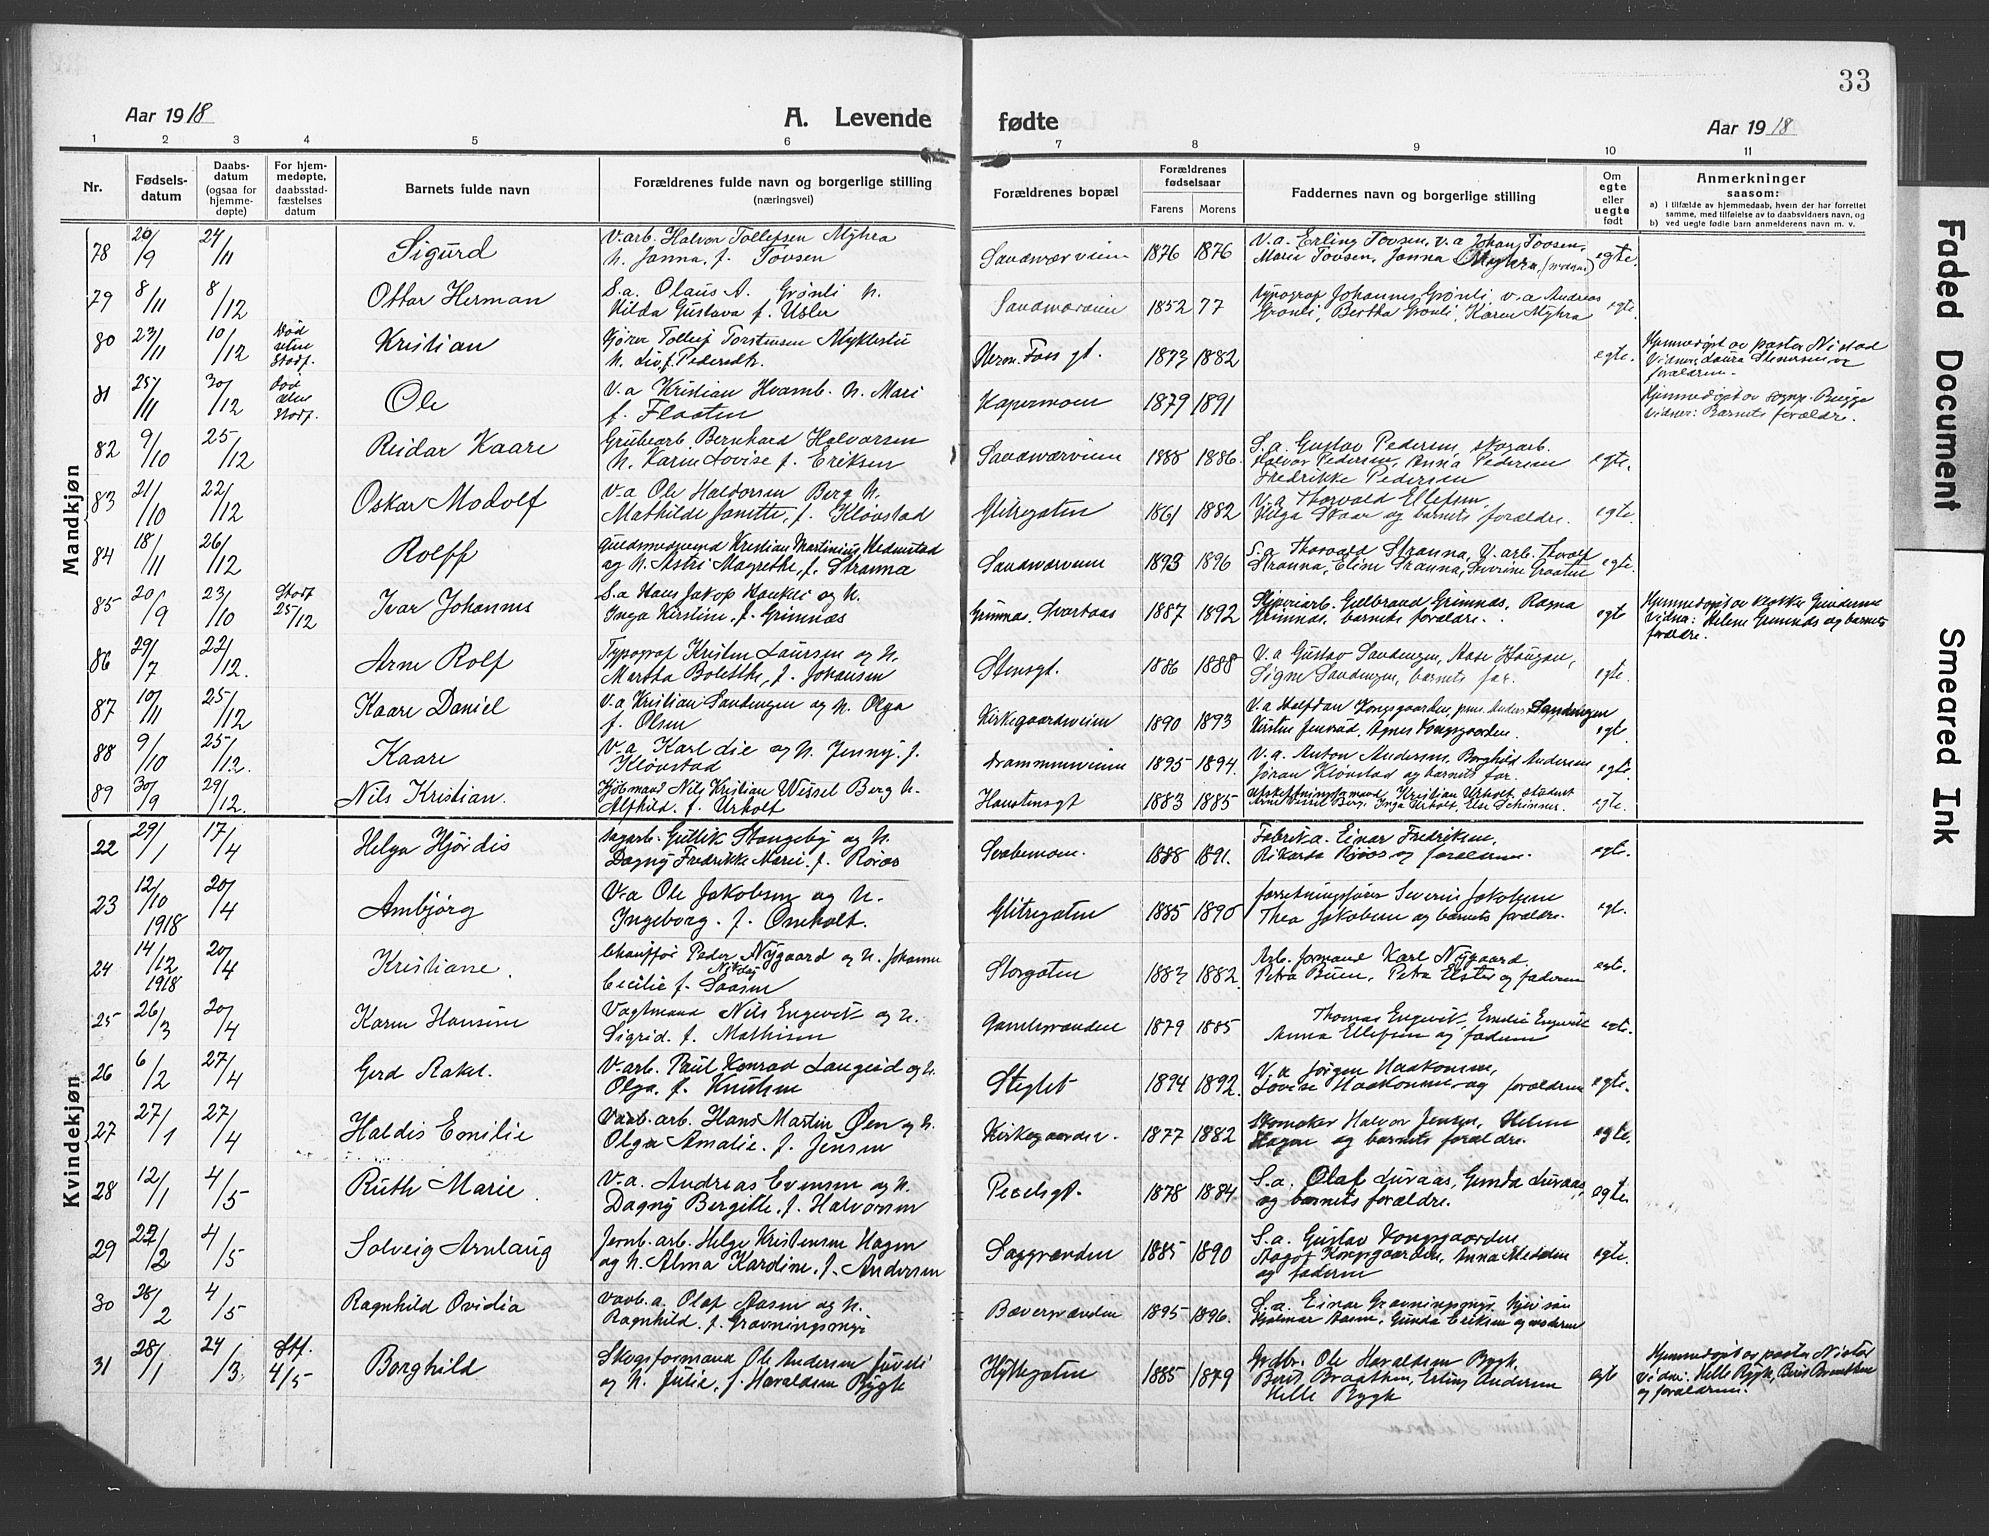 33
Aar 1918
A. Levende
fødte
Aar 1918
1 2 3 4 5 6 7 8 9 10 11
Nr.
Fødsels-
datum
Daabs-
datum
(ogsaa for
hjemme-
døpte)
For hjem-
medøpte,
daabsstad-
fæstelses
datum
Barnets fulde navn
Forældrenes fulde navn og borgerlige stilling
(næringsvei)
Forældrenes bopæl
Forældrenes
fødselsaar
Farens Morens
Faddernes navn og borgerlige stilling
Om
egte
eller
uegte
født
Anmerkninger
saasom:
a) i tilfælde av hjemmedaab, hvem der har forrettet
samme, med tilføielse av to daabsvidners navn, og
b) ved uegte fødte barn anmelderens navn m. v.
Mandkjøn
78 20/9 24/11 Sigurd
V.arb. Halvor Tollefsen Myhra
h. Janna, f. Tovsen
Sandsværveien 1876 1876
V.a. Erling Tovsen, v.a Johan Tovsen,
Marie Tovsen, Janna Myhra (moren)
egte.
79 8/11 8/12 Ottar Herman
S.a. Olaus A. Grønli h.
Hilda Gustava f. Usler
Sandsværveien 1852 77
Typograf Johannes Grønli, v.a Andreas
Grønli, Bertha Grønli, Karen Myhra
egte.
80 23/11 10/12 Død uten Stadf. Kristian
Gjører Tollef Torstensen Myklestu
h. Liv f. Pedersdtr.
Herm. Foss gt. 1873 1882
egte.
Hjemmedøpt av pastor Nistad
Vidner: Laura Stenersen og
forældrene.
81 25/11 30/12 Død uten Stadf. Ole
V.a Kristian Hvamb. h. Mari
f. Flaaten
Kapermoen 1879 1891
Hjemmedøpt av sognepr. Bugge
Vidner: Barnets forældre.
82 9/10 25/12 Reidar Kaare
Grubearb. Bernhard Halvorsen
h. Karin Lovise f. Eriksen
Sandsværveien 1888 1886
S.a. Gustav Pedersen, skogarb.
Halvor Pedersen, Anna Pedersen
Fredrikke Pedersen
egte.
83 21/10 22/12 Oskar Modolf
V.a Ole Haldorsen Berg h.
Mathilde Janette, f. Kløvstad
Glitregaten 1861 1882
V.a Thorvald Ellefsen,
Helga Skaar og barnets forældre.
egte.
84 18/11 26/12 Rolff
Guldsmedsvend Kristian Martinius Hedenstad
og h. Astri Magrethe, f. Stranna
Sandsværveien 1893 1896
S.a Thorvald Stranna, V. arb. Thorolf
Stranna, Eline Stranna, Severine Graaten
egte.
85 20/9 23/10 Stadf 25/12 Ivar Johannes
S.a Hans Jakop Haukli og h.
Inga Kirstine, f. Grimnæs
Grimnæs, Svartaas 1887 1892
Sliperiarb. Gulbrand Grimnæs, Ragna
Grimnæs, barnets forældre.
egte
Hjemmedøpt av klokker Gundersen
Vidner: Helene Grimnæs og barnets
forældre.
86 29/7 22/12. Arne Rolf
Typograf Kristen Laursen og h.
Martha Bolethe, f. Johansen
Stensgt. 1886 1888
V.a Gustav Sandengen, Aase Haugan,
Signe Sandengen, barnets far.
egte.
87 10/11 25/12 Kaare Daniel
V.a Kristian Sandengen og h. Olga
f. Olsen
Kirkegaardsveien 1890 1893
V.a Halfdan Kongsgaarden, Anders Sandengen
Kirstine Jensrud, Agnes Kongsgaarden.
egt.
88 9/10 25/12. Kaare
V.a. Karl Lie og h. Jenny, f.
Kløvstad
Drammensveien 1895 1894.
V.a. Anton Andersen, Borghild Andersen
Jøran Kløvstad og barnets far.
egte.
89 30/9 29/12. Nils Kristian.
Kjøbmand Nils Kristian Wessel Berg h.
Alfhild. f. Urholt
Haustensgt 1883 1885
Kristian Urholt, student
Arne Wessel Berg, Inga Urholt, Else
egte.
Kvindekjøn
22 29/1 17/4 Helga Hjørdis
Dagarb. Gullik Stangeby og h.
Dagny Fredrikke Marie, f. Roiaas
1888 1891.
Fabrik a. Einar Fredriksen,
Rikarda Roiaas og forældrene.
egte.
23 12/10 1918 20/4 Ambjørg
V.a Ole Jakobsen og h.
Ingeborg. f. Omholt.
Glitregaten 1885 1890
Forretningsfører Severin Jakobsen
Thea Jakobsen og barnets forældre.
egt.
24 14/12 1918 20/4 Kristiane.
Chauffør Peder Nygaard og h. Johanne
Cecilie f. Saasen
Storgaten 1883 1882.
Arb. formand Karl Nygaard,
Petra Buen, Petra Elster og faderen
egte.
25 26/3 20/4 Karen Hansine
Vagtmand Nils Engevik og h.
Sigrid. f. Mathisen
Gamlegrænden 1879 1885
Thomas Engevik, Emilie Engevik
Anna Ellefsen og faderen
egte.
26 6/2 27/4 Gerd Rakel.
V.arb. Paul Konrad Langerød og h.
Olga f. Knutsen
Steglet 1894 1892.
V.a Jørgen Haakonsen,
Lovise Haakonsen og forældrene
egte.
27 27/1 27/4 Haldis Emilie
Vaab. arb. Hans Martin Øen og h.
Olga Amalie. f. Jensen
Kirkegaardsv. 1877 1882
Skomaker Halvor Jensen, Helene
Hagen og barnets forældre.
egte.
28 12/1 4/5 Ruth Marie.
V.a. Andreas Evensen og h.
Dagny Bergitte, f. Halvorsen
Peckelsgt. 1878 1884
S.a. Olaf Luraas, Gunda Luraas,
og barnets forældre.
egte.
29 22/2 4/5 Solveig Arnlaug
Jernb. arb. Helge Kristensen Hagen
og h. Alma Kardine, f. Andersen
Saggrænden 1885 1890
S.a. Gustav Kongsgaarden
Aagot Kongsgaarden, Anna
og faderen
egte.
30 28/2 4/5 Ragnhild Ovidia
Vaab.a. Olaf Aasen og h.
Ragnhild. f. Gravningsmyr
Bævergrænden 1895 1896.
S.a. Einar Gravningsmyr,
Hjalmar Aasen, Gunda Eriksen og moderen
31 28/1 24/3 Stf. 4/5 Borghild
Skogsformand Ole Andersen Juveli
og h. Julie, f. Haraldsen Rygh
Hyttegaten 1885 1879
Grdbr. Ole Haraldsen Rygh,
Berit Braathen, Erling Andersen
Helle Rygh
egte
Hjemmedøpt av pastor Nistad
Vidner: Helle Rygh, Berit Braathen
og forældrene.
Faded Document
Smeared Ink